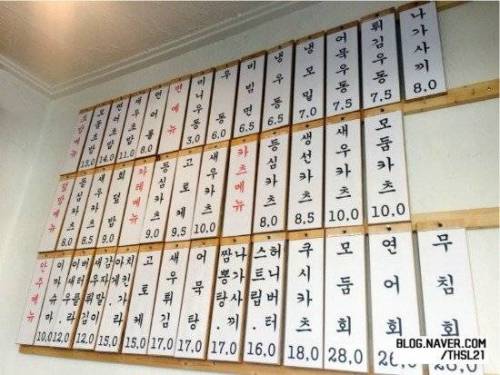 초밥메뉴
모듬초밥 13.0
연어초밥
새우초밥 11.0
연어롤 8.0
면메뉴
미니우동 3.0
우동 6.0
비빔면 6.5
냉우동 6.5
냉모밀 7.0
어묵우동 7.5
튀김우동 7.5
나가사끼 8.0
덮밥메뉴
등심카츠 8.0
새우카츠 8.5
회덮밥 9.0
카레메뉴
등심카츠 9.0
고로케 9.5
새우카츠 10.0
카츠메뉴
등심카츠 8.0
생선카츠 8.5
새우카츠 10.0
모듬카츠 10.0
안주메뉴
10.0
12.0
감자튀김
치킨가라아게 15.0
고로케 17.0
새우튀김 17.0
어묵탕 17.0
나가사끼짬뽕탕 17.0
허니버터스트립 16.0
쿠시카츠 18.0
모둠회 28.0
연어회
무침회
BLOG.NAVER.COM
/THSL21